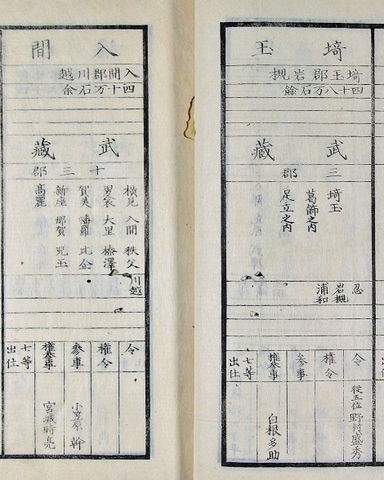 埼玉
埼玉郡岩槻
四十八万石餘
武藏
三郡
埼玉
葛飾之内
足立之内
忍
岩槻
浦和
令
從五位野村盛秀
權令
參事
權參事
白根多助
七等出仕
入間
入間郡川越
四十万石余
武藏
十三郡
横見 入間 秩父
男衾 大里 榛澤
賀美 幡羅 比企
新座 那賀 児玉
高麗
川越
令
權令
參事
小笠原幹
權參事
宮城時亮
七等出仕